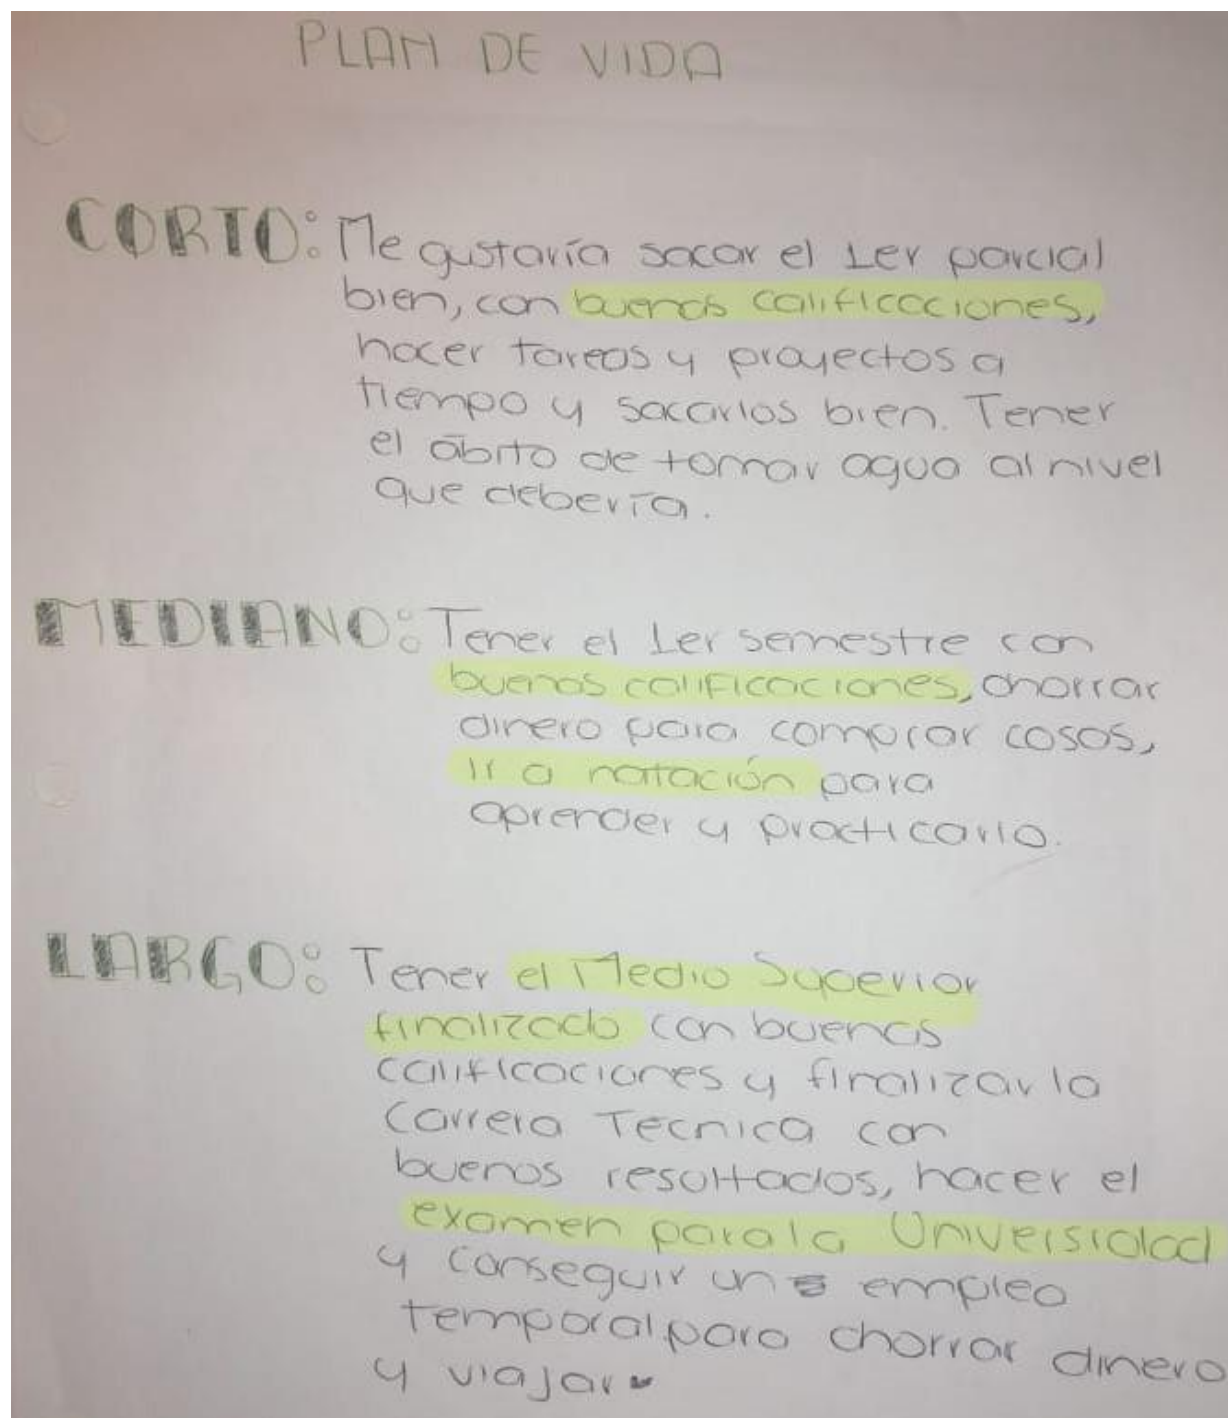 PLAN DE VIDA
CORTO: Me gustaría sacar el 1er parcial
bien, con buenas calificaciones,
hacer tareas y proyectos a
tiempo y sacarlos bien. Tener
el ábito de tomar agua al nivel
que debería.
MEDIANO: Tener el 1er semestre con
buenas calificaciones, ahorrar
dinero para comprar cosas,
ir a natación para
aprender y practicarlo.
LARGO: Tener el Medio Superior
finalizado con buenas
calificaciones y finalizar la
Carrera Tecnica con
buenos resultados, hacer el
examen para la Universidad
y conseguir un empleo
temporal para ahorrar dinero
y viajar.